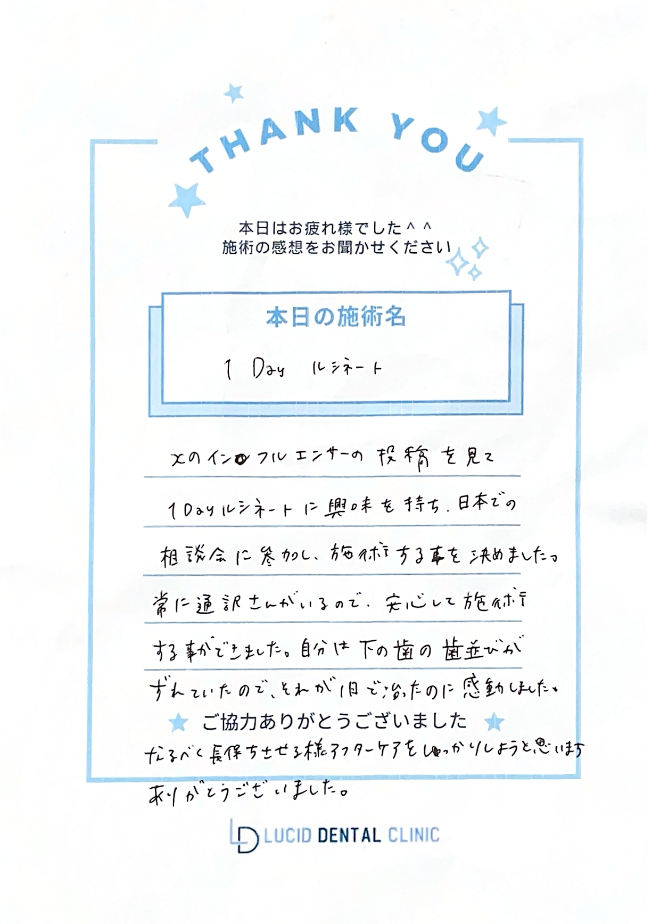 THANK YOU
本日はお疲れ様でした^ ^
施術の感想をお聞かせください
本日の施術名
1 Day ルシネート
Xのインフルエンサーの投稿を見て
1Dayルシネートに興味を持ち、日本での
相談会に参加し、施術する事を決めました。
常に通訳さんがいるので、安心して施術
する事ができました。自分は下の歯の歯並びが
ずれていたので、それが1日で治ったのに感動しました。
ご協力ありがとうございました
なるべく長保ちさせる様アフターケアをしっかりしようと思います
ありがとうございました。
LD LUCID DENTAL CLINIC